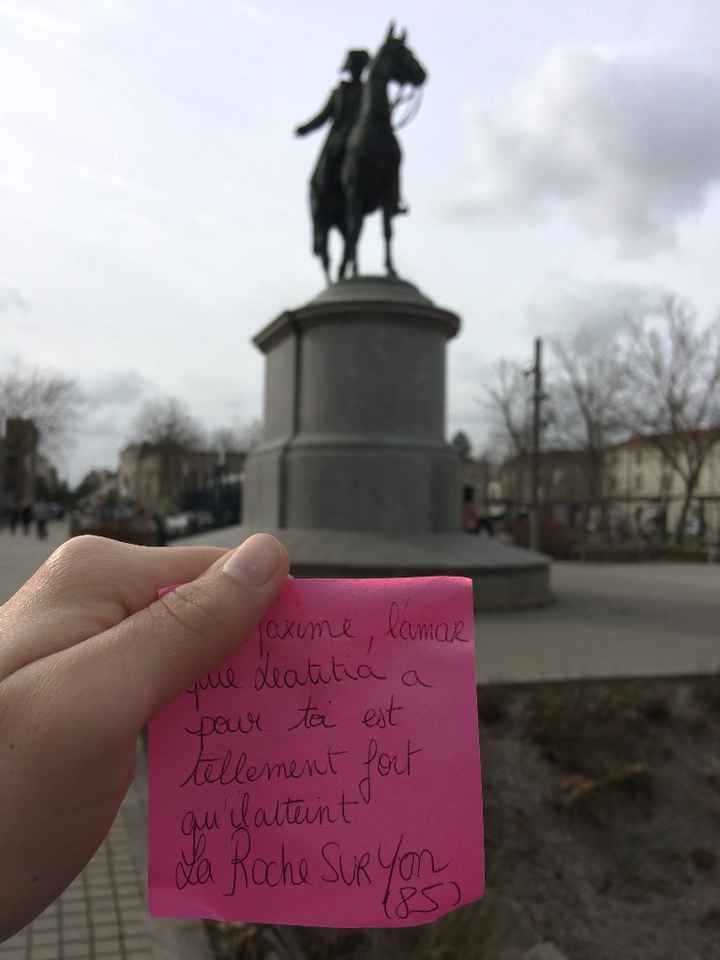 Maxime, l'amour
que Leatitia a
pour toi est
tellement fort
qu'il atteint
La Roche SUR Yon
(85)